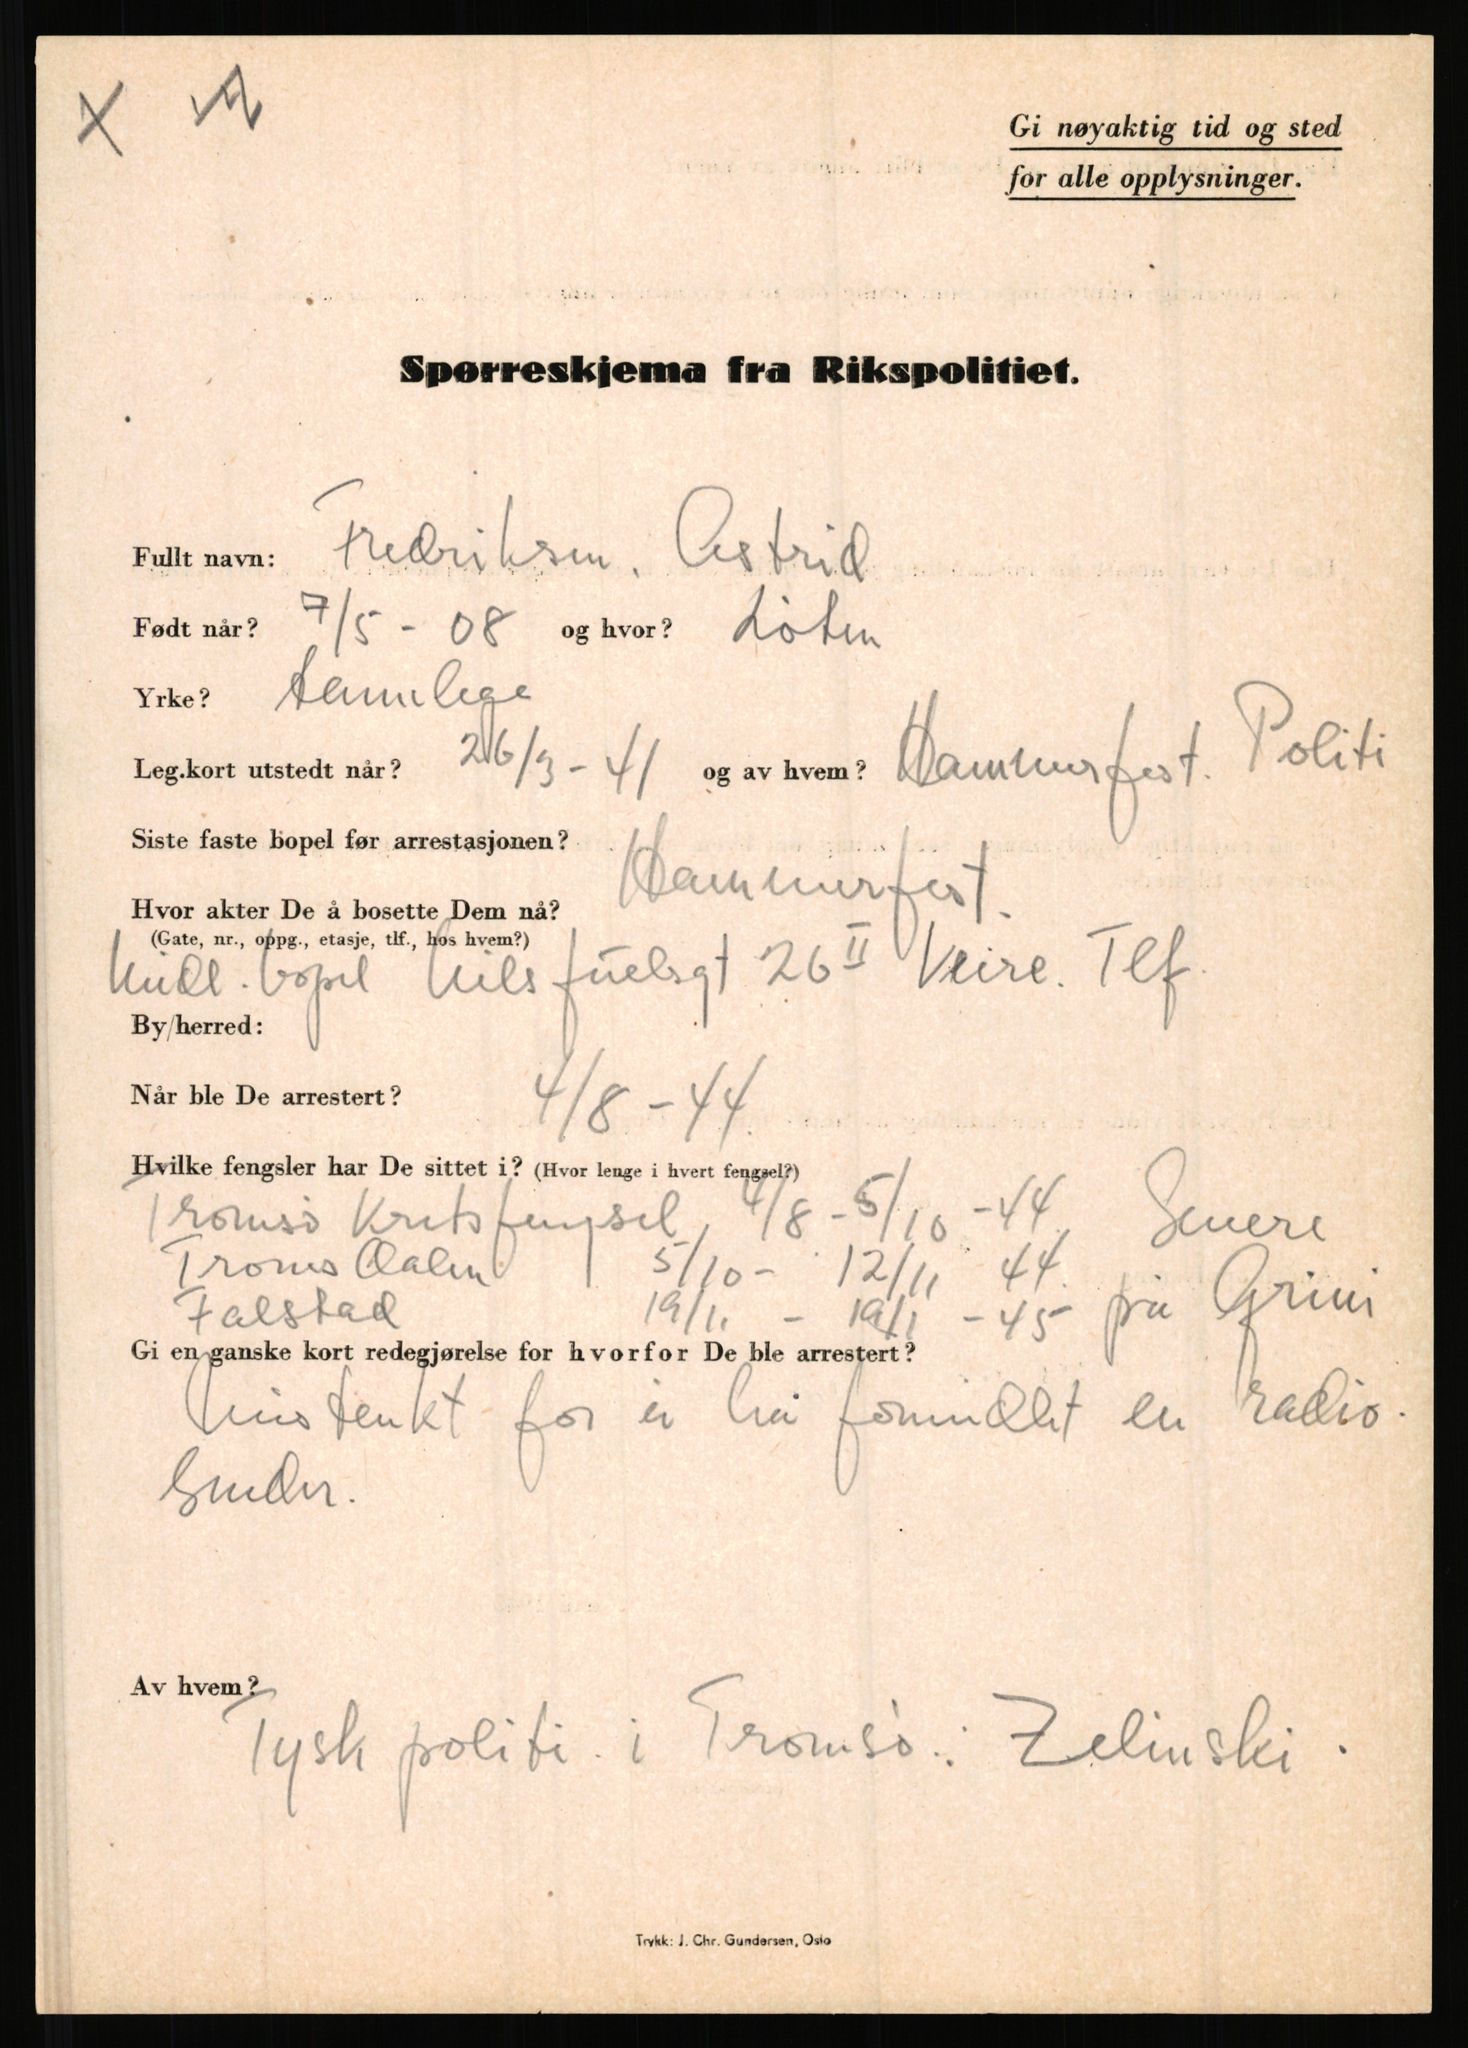 Gi nøyaktig tid og sted
for alle opplysninger.
Spørreskjema fra Rikspolitiet.
Fullt navn: Fredriksen, Astrid
Født når? 7/5 - 08 og hvor? Løten
Yrke? tannlege
Leg.kort utstedt når? 26/3 - 41 og av hvem? Hammerfest. Politi
Siste faste bopel før arrestasjonen? Hammerfest.
Hvor akter De å bosette Dem nå?
(Gate, nr., oppg., etasje, tlf., hos hvem?)
Midl. bopel Nils Juelsgt 26 II Tlf.
By/herred:
Når ble De arrestert? 4/8 - 44.
Hvilke fengsler har De sittet i? (Hvor lenge i hvert fengsel?)
Tromsø Kretsfengsel 4/8 - 5/10 - 44. Senere
Tromsdalen 5/10 - 12/11 44.
Falstad 19/11 - 19/1 - 45 på Grini
Gi en ganske kort redegjørelse for hvorfor De ble arrestert?
Mistenkt for å ha formidlet en radio-
sender.
Av hvem?
Tysk politi i Tromsø: Zelinski.
Trykk: J. Chr. Gundersen, Oslo